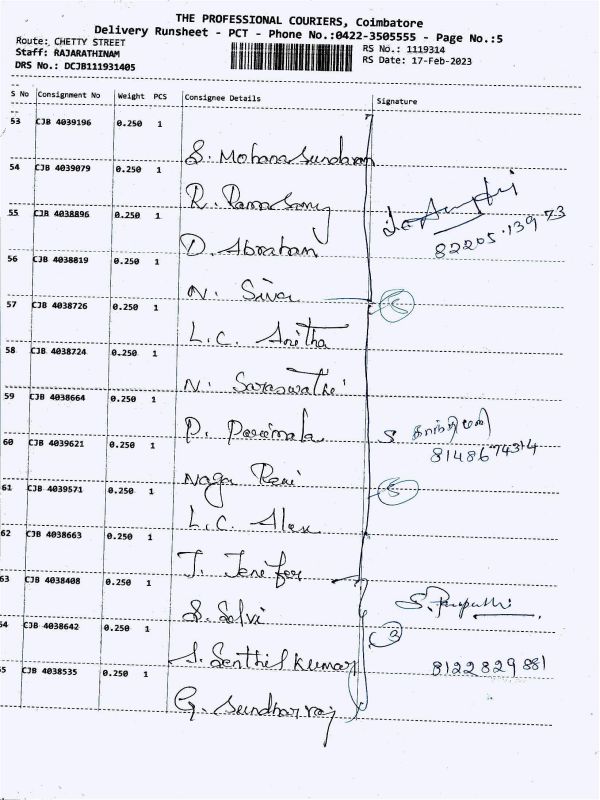 THE PROFESSIONAL COURIERS, Coimbatore
Delivery Runsheet - PCT - Phone No.:0422-3505555 - Page No.:5
Route: CHETTY STREET
RS No.: 1119314
Staff: RAJARATHINAM
RS Date: 17-Feb-2023
DRS No.: DCJB111931405
S No Consignment No Weight PCS Consignee Details Signature
53 CJB 4039196 0.250 1
S. Mohana Sundaram
54 CJB 4039079 0.250 1
R. Ramasamy
55 CJB 4038896 0.250 1
82205 13973
D. Abraham
56 CJB 4038819 0.250 1
N. Siva
6
57 CJB 4038726 0.250 1
L.C. Anitha
58 CJB 4038724 0.250 1
N. Saraswathi
59 CJB 4038664 0.250 1
P. Parimala
S காந்திமதி
60 CJB 4039621 0.250 1
8148674314
Naga Rani
61 CJB 4039571 0.250 1
5
L.C. Alex
62 CJB 4038663 0.250 1
J. Jenifer
63 CJB 4038408 0.250 1
S. Selvi
54 CJB 4038642 0.250 1
2
J. Senthil kumar
8122829881
55 CJB 4038535 0.250 1
G. Sundharraj